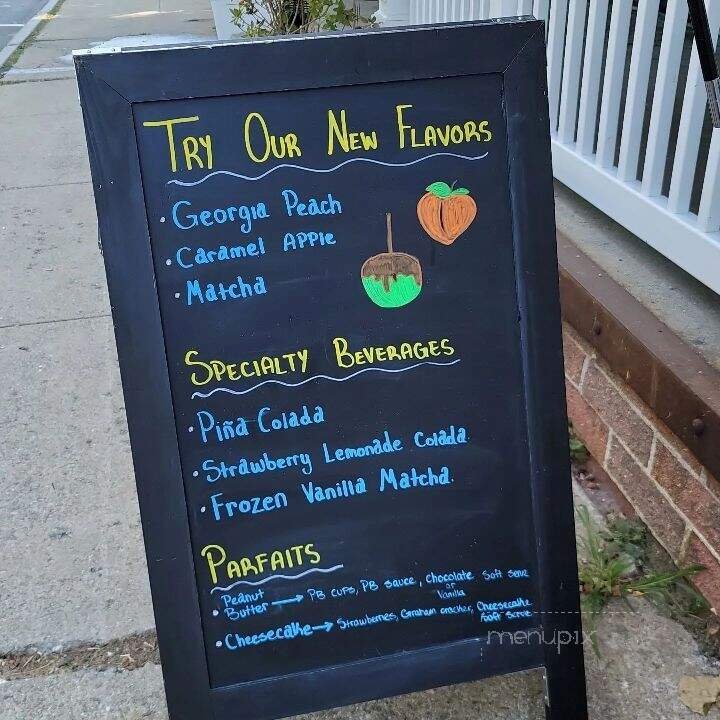 TRY OUR NEW FLAVORS
• Georgia Peach
• Caramel APPle
• Matcha
SPECIALTY BEVERAGES
• Piña Colada
• Strawberry Lemonade Colada
• Frozen Vanilla Matcha.
PARFAITS
• Peanut Butter → PB cups, PB sauce, chocolate or Vanilla Soft serve
• Cheesecake → Strawberries, Graham cracker, Cheesecake Soft Serve
menupix